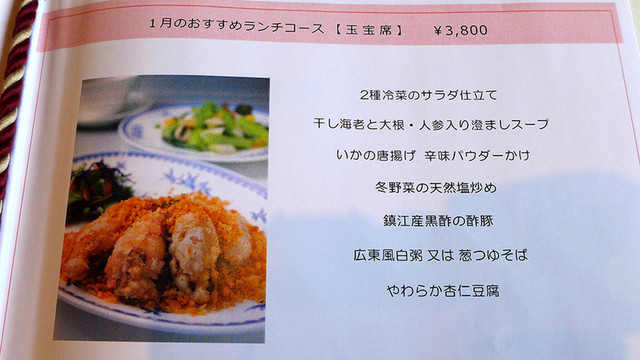 1月のおすすめランチコース【玉宝席】 ¥3,800
2種冷菜のサラダ仕立て
干し海老と大根・人参入り澄ましスープ
いかの唐揚げ 辛味パウダーかけ
冬野菜の天然塩炒め
鎮江産黒酢の酢豚
広東風白粥 又は 葱つゆそば
やわらか杏仁豆腐